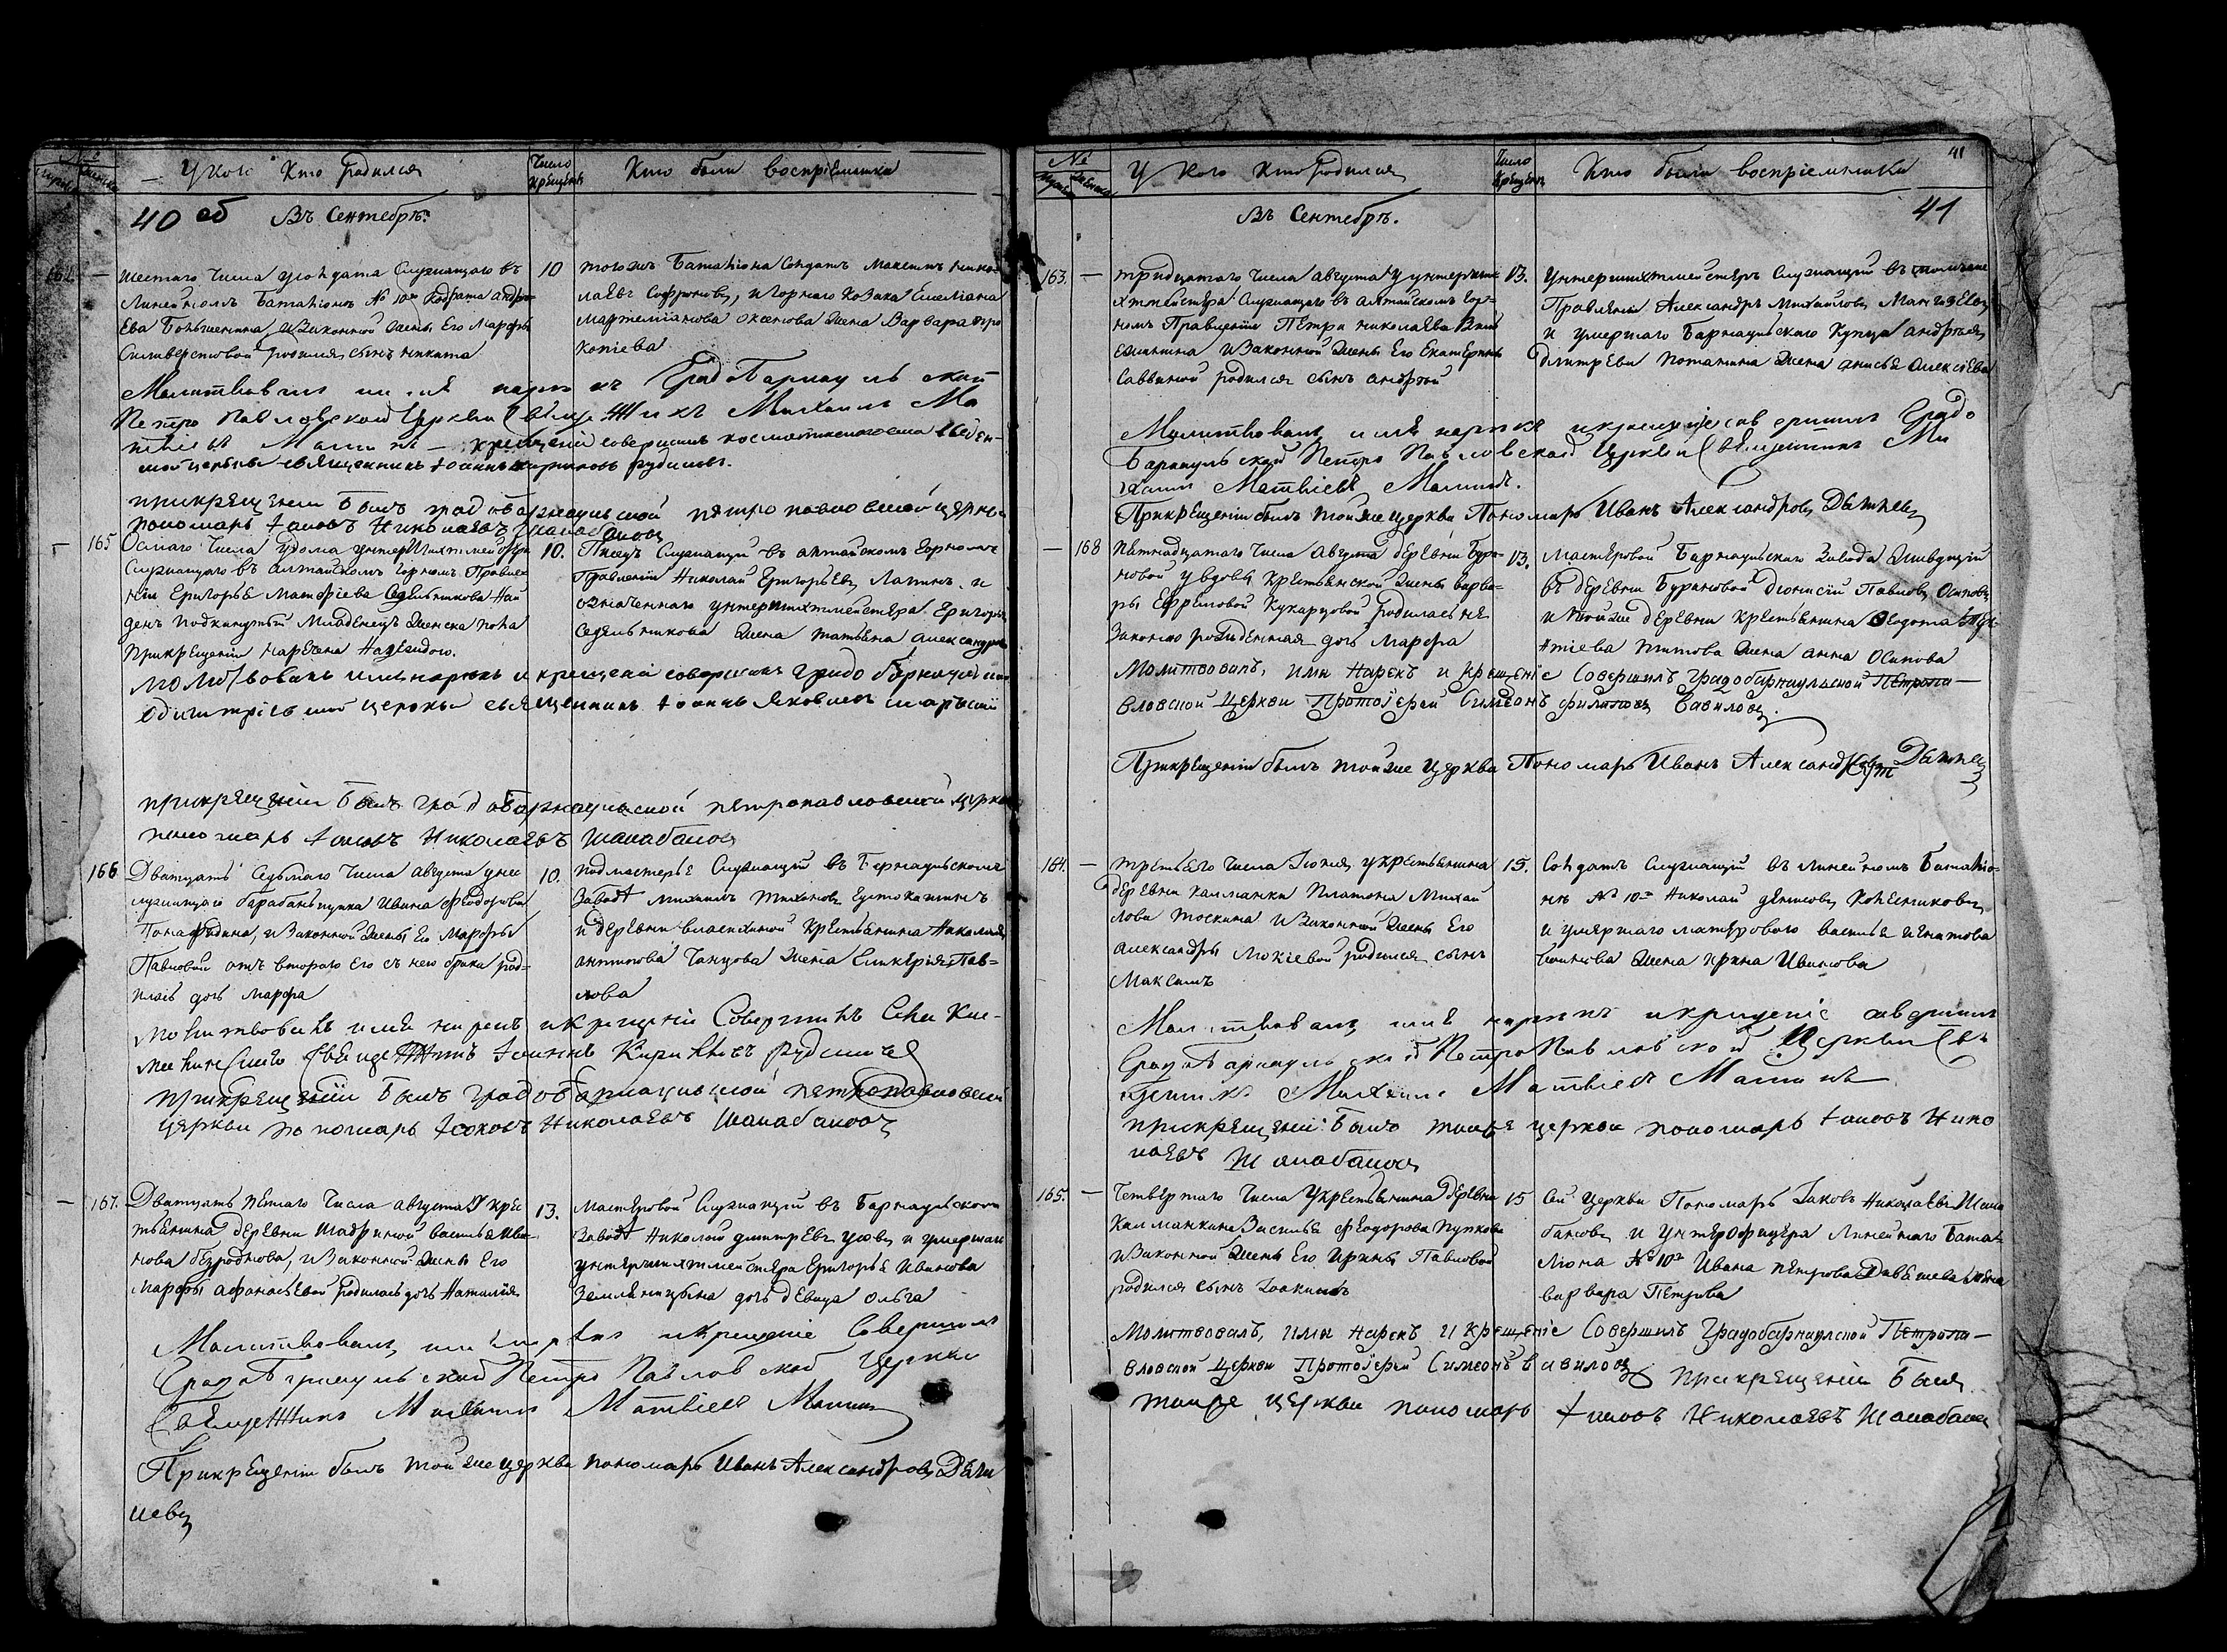 №
Мужеска Женска
У кого Кто Родился
Число Крещенія
Кто были восприемники
40 об Въ Сентебрѣ.
162. — шестаго Числа у солдата Служащаго въ
Линейномъ Баталіонѣ № 10го Кодрата Андрѣ-
ева Большенина, и Законной Жены Его Марфы
Силиверстовой родился сынъ Никита
10
тогожъ Баталіона Солдатъ Максимъ Нико-
лаевъ Софроновъ, и Горнаго Козака Емелiана
Мартемiянова Оксенова Жена Варвара Про
копiева
Молитвовалъ имя нарекъ Градо Барнаульской
Петро Павловской Церкви Священникъ Михаилъ Ма
твiевъ Малинъ — крещенiе совершилъ
священникъ Іоаннъ Кириловъ Рудичевъ.
прикрещенiи Былъ градобарнаульской петропавловской церкви
пономарь Іаковъ Николаевъ Шалабановъ
— 165 Осмаго Числа у дома унтершихтмейстера
Служащаго въ Алтайскомъ Горномъ Правле-
нiи Григорья Матфiева Седельникова Най
денъ подкинутый Младенецъ Женска пола
Прикрещенiи Наречена Надеждою.
10.
Писецъ Служащiй въ Алтайскомъ Горномъ
Правленiи Николай Григорьевъ Лапинъ и
означеннаго унтершихтмейстера Григорья
Седельникова Жена Татьяна Александрова
молитвовалъ имя нарекъ и крещенiе совершилъ градо барнаульской
Одигитрiевской церкви священникъ Іоаннъ Яковлевъ
прикрещенiи Былъ градобарнаульской петропавловской церкви
пономарь Іаковъ Николаевъ Шалабановъ
166 Дватцать Седьмаго Числа августа у не
служащаго барабаньщика Ивана Феодорова
Понафидина, и Законной Жены Его Марфы
Павловой отъ втораго Его съ нею брака роди-
лась дочь Марфа
10.
подмастерье Служащiй въ Барнаульскомъ
Заводѣ Михаилъ Тихоновъ Еустокашинъ
и деревни Власихиной Крестьянина Николая
Антипова Чанцова Жена Гликерiя Пав-
лова
Молитвовалъ имя нарекъ и крещенiе Совершилъ
Священникъ Іоаннъ Кириловъ Рудичевъ
прикрещенiи Былъ градобарнаульской петропавловской
церкви пономарь Іаковъ Николаевъ Шалабановъ
— 167. Дватцать пятаго Числа августа У крес
тьянина деревни Шадриной Василья Ива-
нова Безроднова, и Законной Жены Его
Марфы Афанасьевой родилась дочь Наталия
13.
мастеровой Служащiй въ Барнаульскомъ
Заводѣ Николай Дмитревъ Усовъ и умершаго
унтершихтмейстера Григорья Иванова
Земляницына дочь девица Ольга
Молитвовалъ, имя нарекъ и крещенiе Совершилъ
Градо Барнаульской Петро Павловской Церкви
Священникъ Михаилъ Матвiевъ Малинъ
Прикрещенiи былъ той же церкви пономарь Иванъ Александровъ Дяги
левъ
№
Мужеска Женска
У Кого Кто Родился
Число Крещенія
Кто были восприемники
41
Въ Сентебрѣ.
41
163. — тридцатаго Числа августа у унтерши
хтмейстера Служащаго въ Алтайскомъ Гор-
номъ Правленiи Петра Николаева
и Законной Жены Его Екатерины
Саввиной родился сынъ Андрей
13.
Унтершихтмейстеръ Служащiй въ
Правленiи Александръ Михайловъ
и умершаго Барнаульскаго Купца Андрея
Дмитрева Потанина Жена Анисья Алексiева
Молитвовалъ имя нарекъ и крещенiе совершилъ Градо
Барнаульской Петро Павловской Церкви Священникъ Ми
хаилъ Матвiевъ Малинъ.
Прикрещенiи былъ той же церкви Пономарь Иванъ Александровъ Дягилевъ
— 168 Пятнадцатаго Числа Августа деревни Бура-
новой у вдовы Крестьянской Жены Варва-
ры Ефремовой Кукарцовой родилась не
Законно рожденная дочь Марфа
13.
Мастеровой Барнаульскаго Завода Живущiй
въ деревни Бурановой Дiонисiй Павловъ Осиповъ
и той же деревни Крестьянина Феодота
Титова Жена Анна Осипова
Молитвовалъ, имя Нарекъ и Крещенiе Совершилъ Градобарнаульской Петропа-
вловской Церкви Протоiерей Симеонъ Филиповъ Вавиловъ.
Прикрещенiи былъ той же Церкви Пономарь Иванъ Александровъ Дягилевъ
164. — третьего Числа Iюня, у крестьянина
деревни Калманки Платона Михай
лова Тоскина и Законной Жены Его
Александры Мокiевой родился сынъ
Максимъ
15.
Солдатъ Служащiй въ Линейномъ Баталiо-
нѣ № 10м Николай Денисовъ Колесниковъ
и умершаго матероваго Василья Игнатова
Жена Ирина Иванова
Молитвовалъ имя нарекъ и крещенiе совершилъ
Градо Барнаульской Петро Павловской Церкви Свя
щенникъ Михаилъ Матвiевъ Малинъ
прикрещенiи Былъ тойже церкви пономарь Іаковъ Нико
лаевъ Шалабановъ
165. — Четвертаго Числа У крестьянина деревни
Калманкина Василья Феодорова Пупкова
и Законной Жены Его Ирины Павловой
родился сынъ Iоакимъ
15
Сей Церкви Пономарь Iаковъ Николаевъ Шала
бановъ и Унтерофицера Линейнаго Бата-
лiона № 10го Ивана Петрова Жена
варвара Петрова
Молитвовалъ, имя Нарекъ и Крещенiе Совершилъ Градобарнаульской Петропа-
вловской Церкви Протоiерей Симеонъ Вавиловъ прикрещенiи Былъ
тойже церкви пономарь Іаковъ Николаевъ Шалабановъ